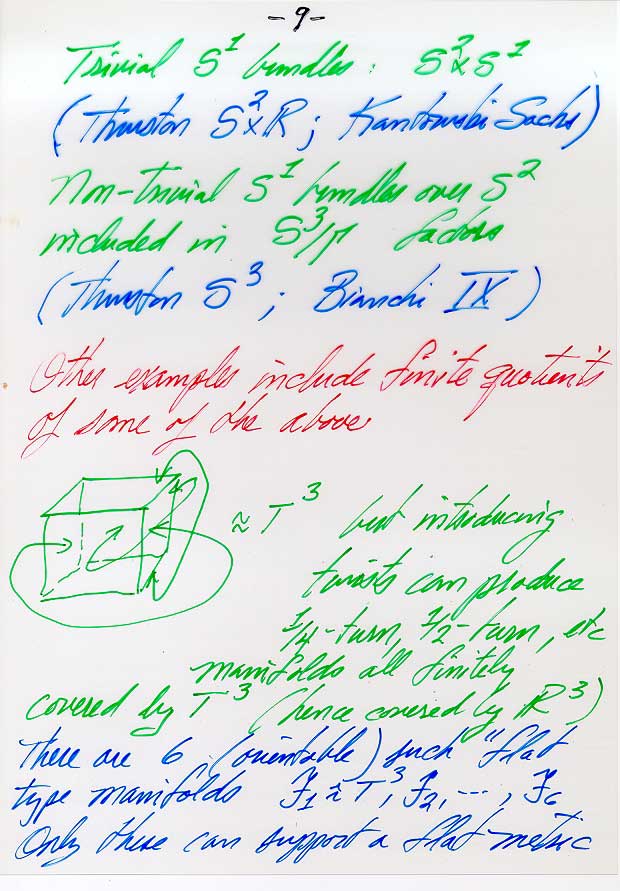 -9-
Trivial S¹ bundles: S²×S¹
(Thurston S²×ℝ; Kantowski Sachs)
Non-trivial S¹ bundles over S²
included in S³/Γ factors
(Thurston S³; Bianchi IX)
Other examples include finite quotients
of some of the above
≈ T³ but introducing
twists can produce
1/4-turn, 1/2-turn, etc
manifolds all finitely
covered by T³ (hence covered by ℝ³)
There are 6 (orientable) such "flat
type manifolds F₁≈T³, F₂, ..., F₆
Only these can support a flat metric